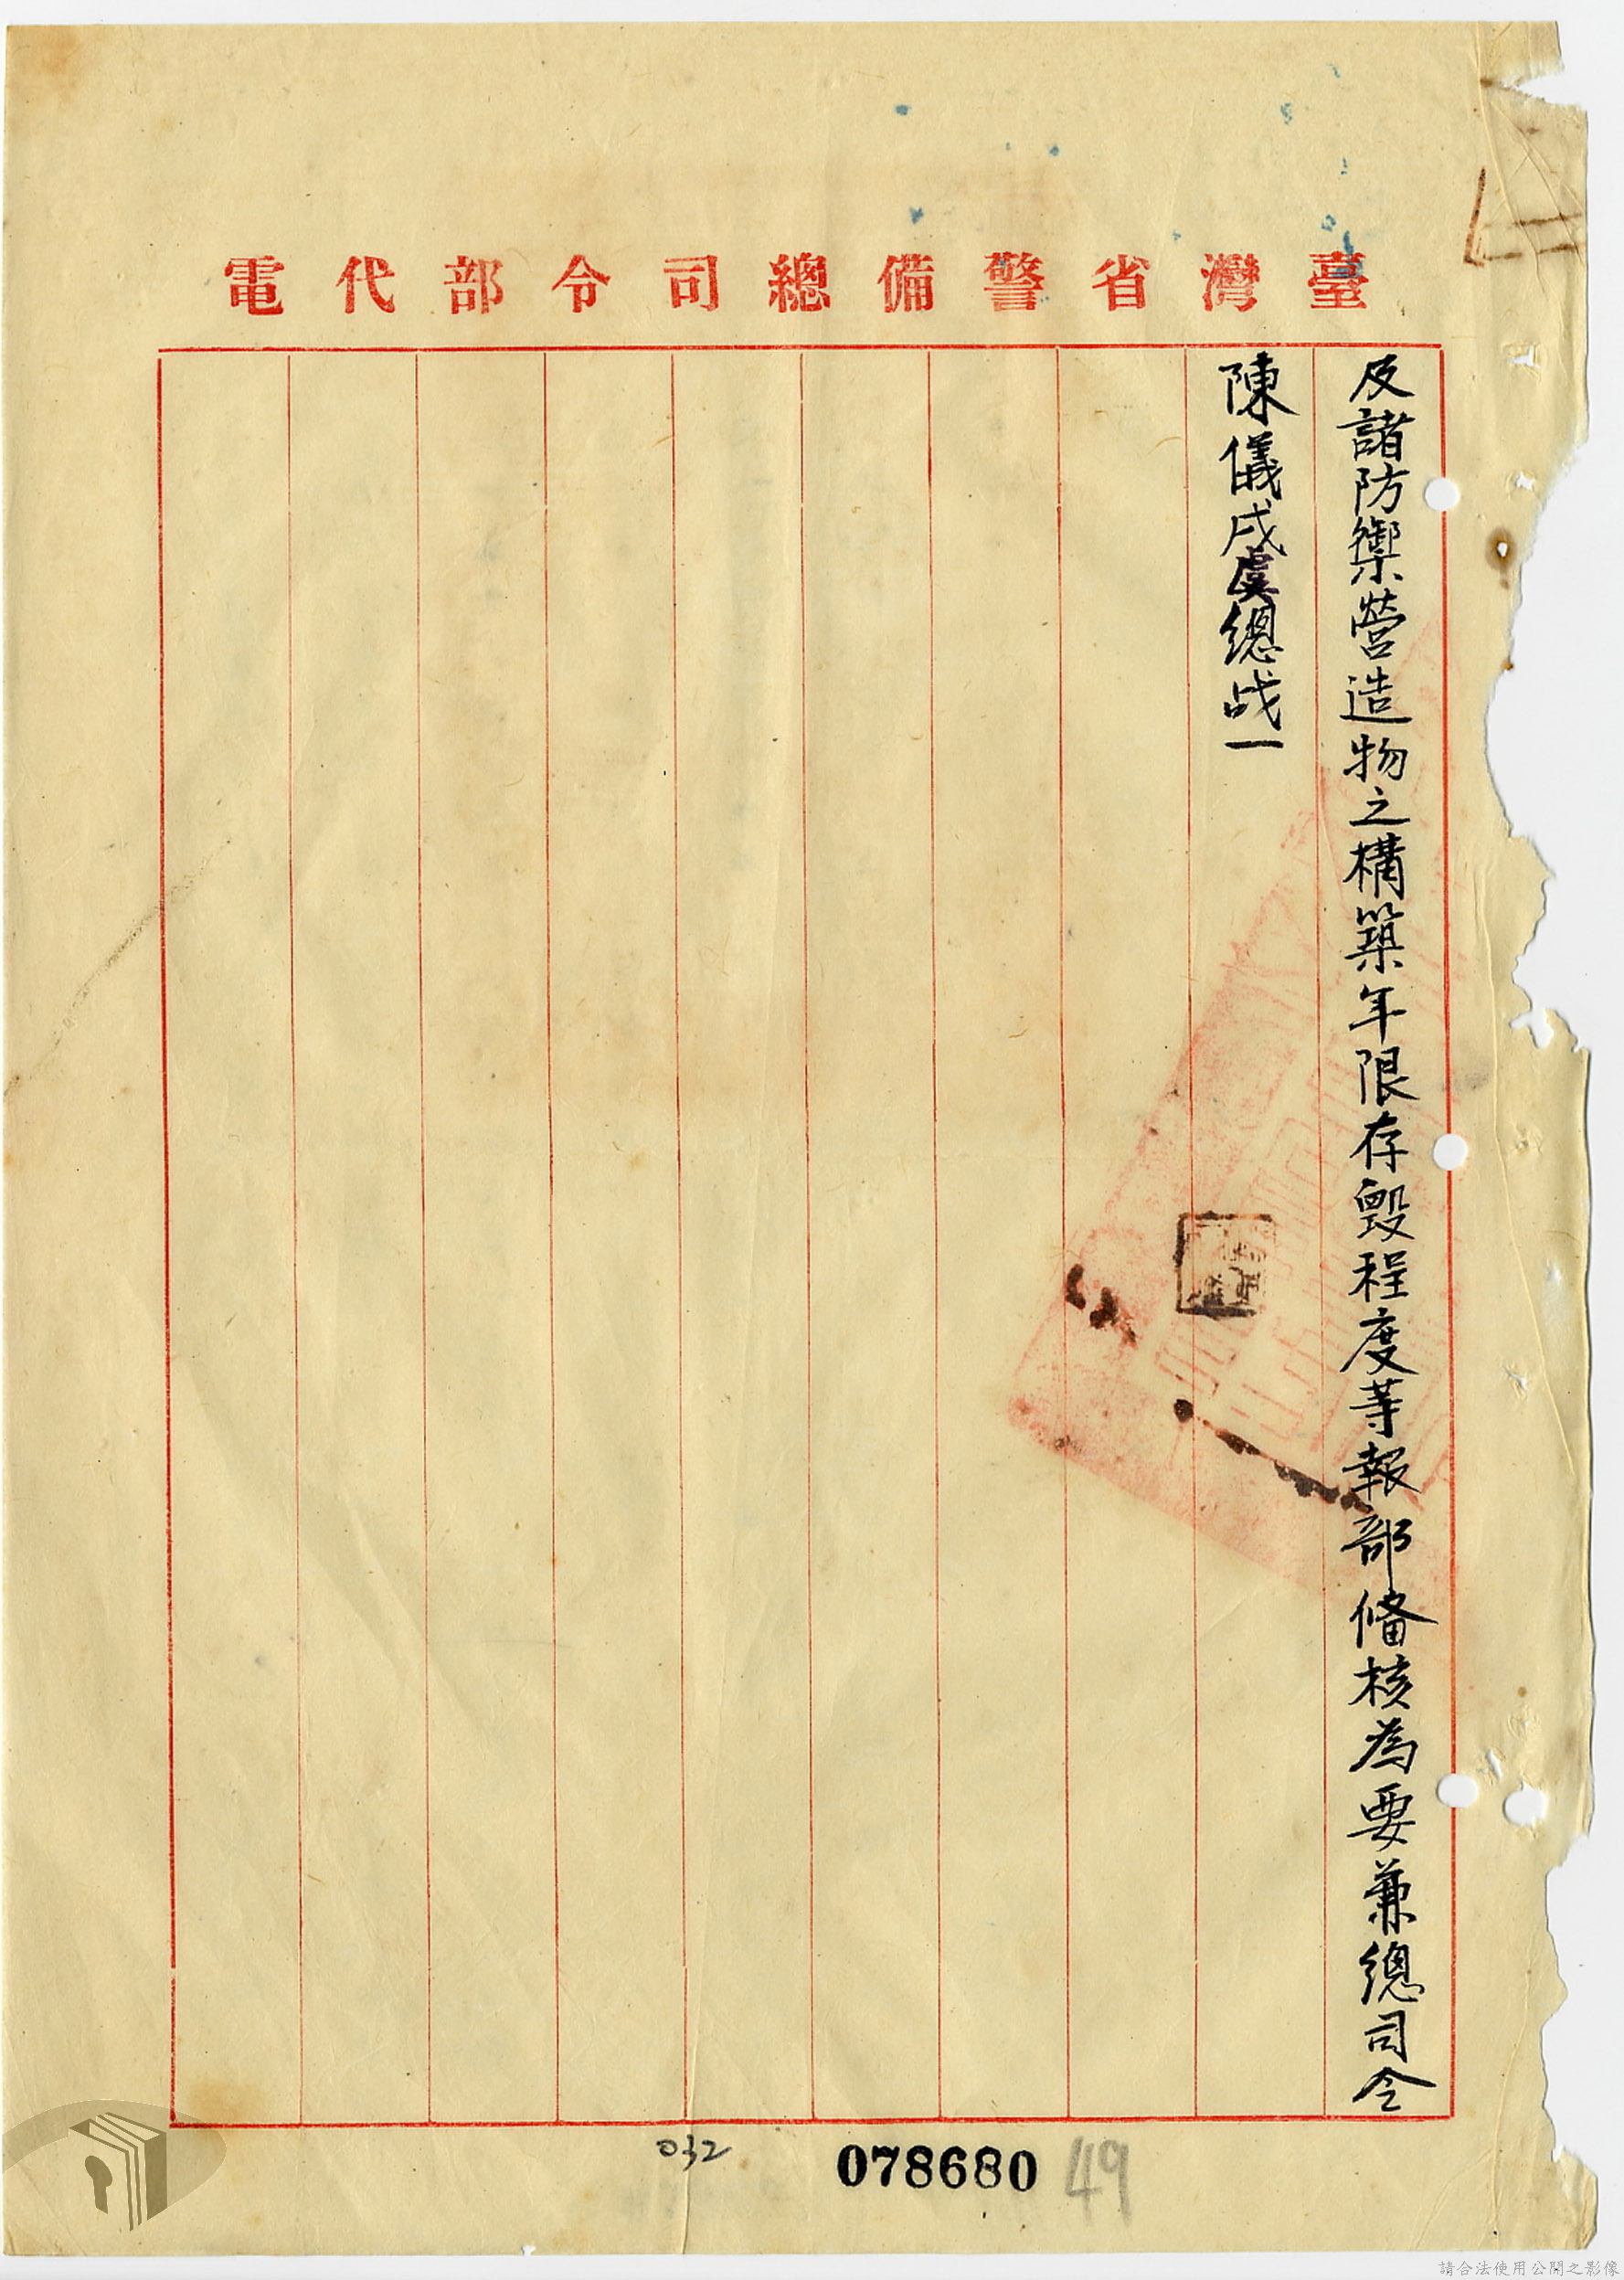 臺灣省警備總司令部代電
及諸防禦營造物之構築年限存毀程度等報部俻核為要兼總司令
陳儀戌虞總战一
032
078680
49
請合法使用公開之影像